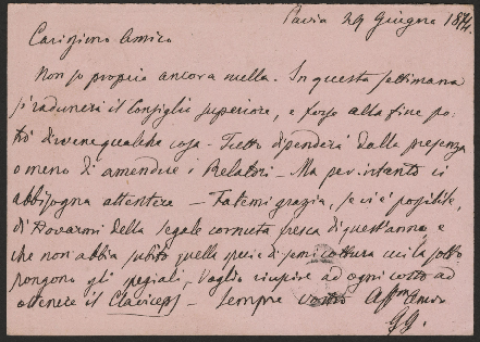 Pavia 29 Giugno 1874.
Carissimo Amico
Non so proprio ancora nulla. In questa settimana
si radunerà il Consiglio superiore, e forse alla fine po-
trò dirvene qualche cosa - Tutto dipenderà dalla presenza
o meno di amendue i Relatori - Ma per intanto ci
abbisogna attentere - Fatemi grazia, se vi è possibile,
di trovarmi della segale cornuta fresca di quest'anno, e
che non abbia subito quella specie di semicottura cui la sotto
pongono gli speziali, voglio riuscire ad ogni costo ad
ottenere il Claviceps - Sempre vostro Aff.mo Amico
GG.